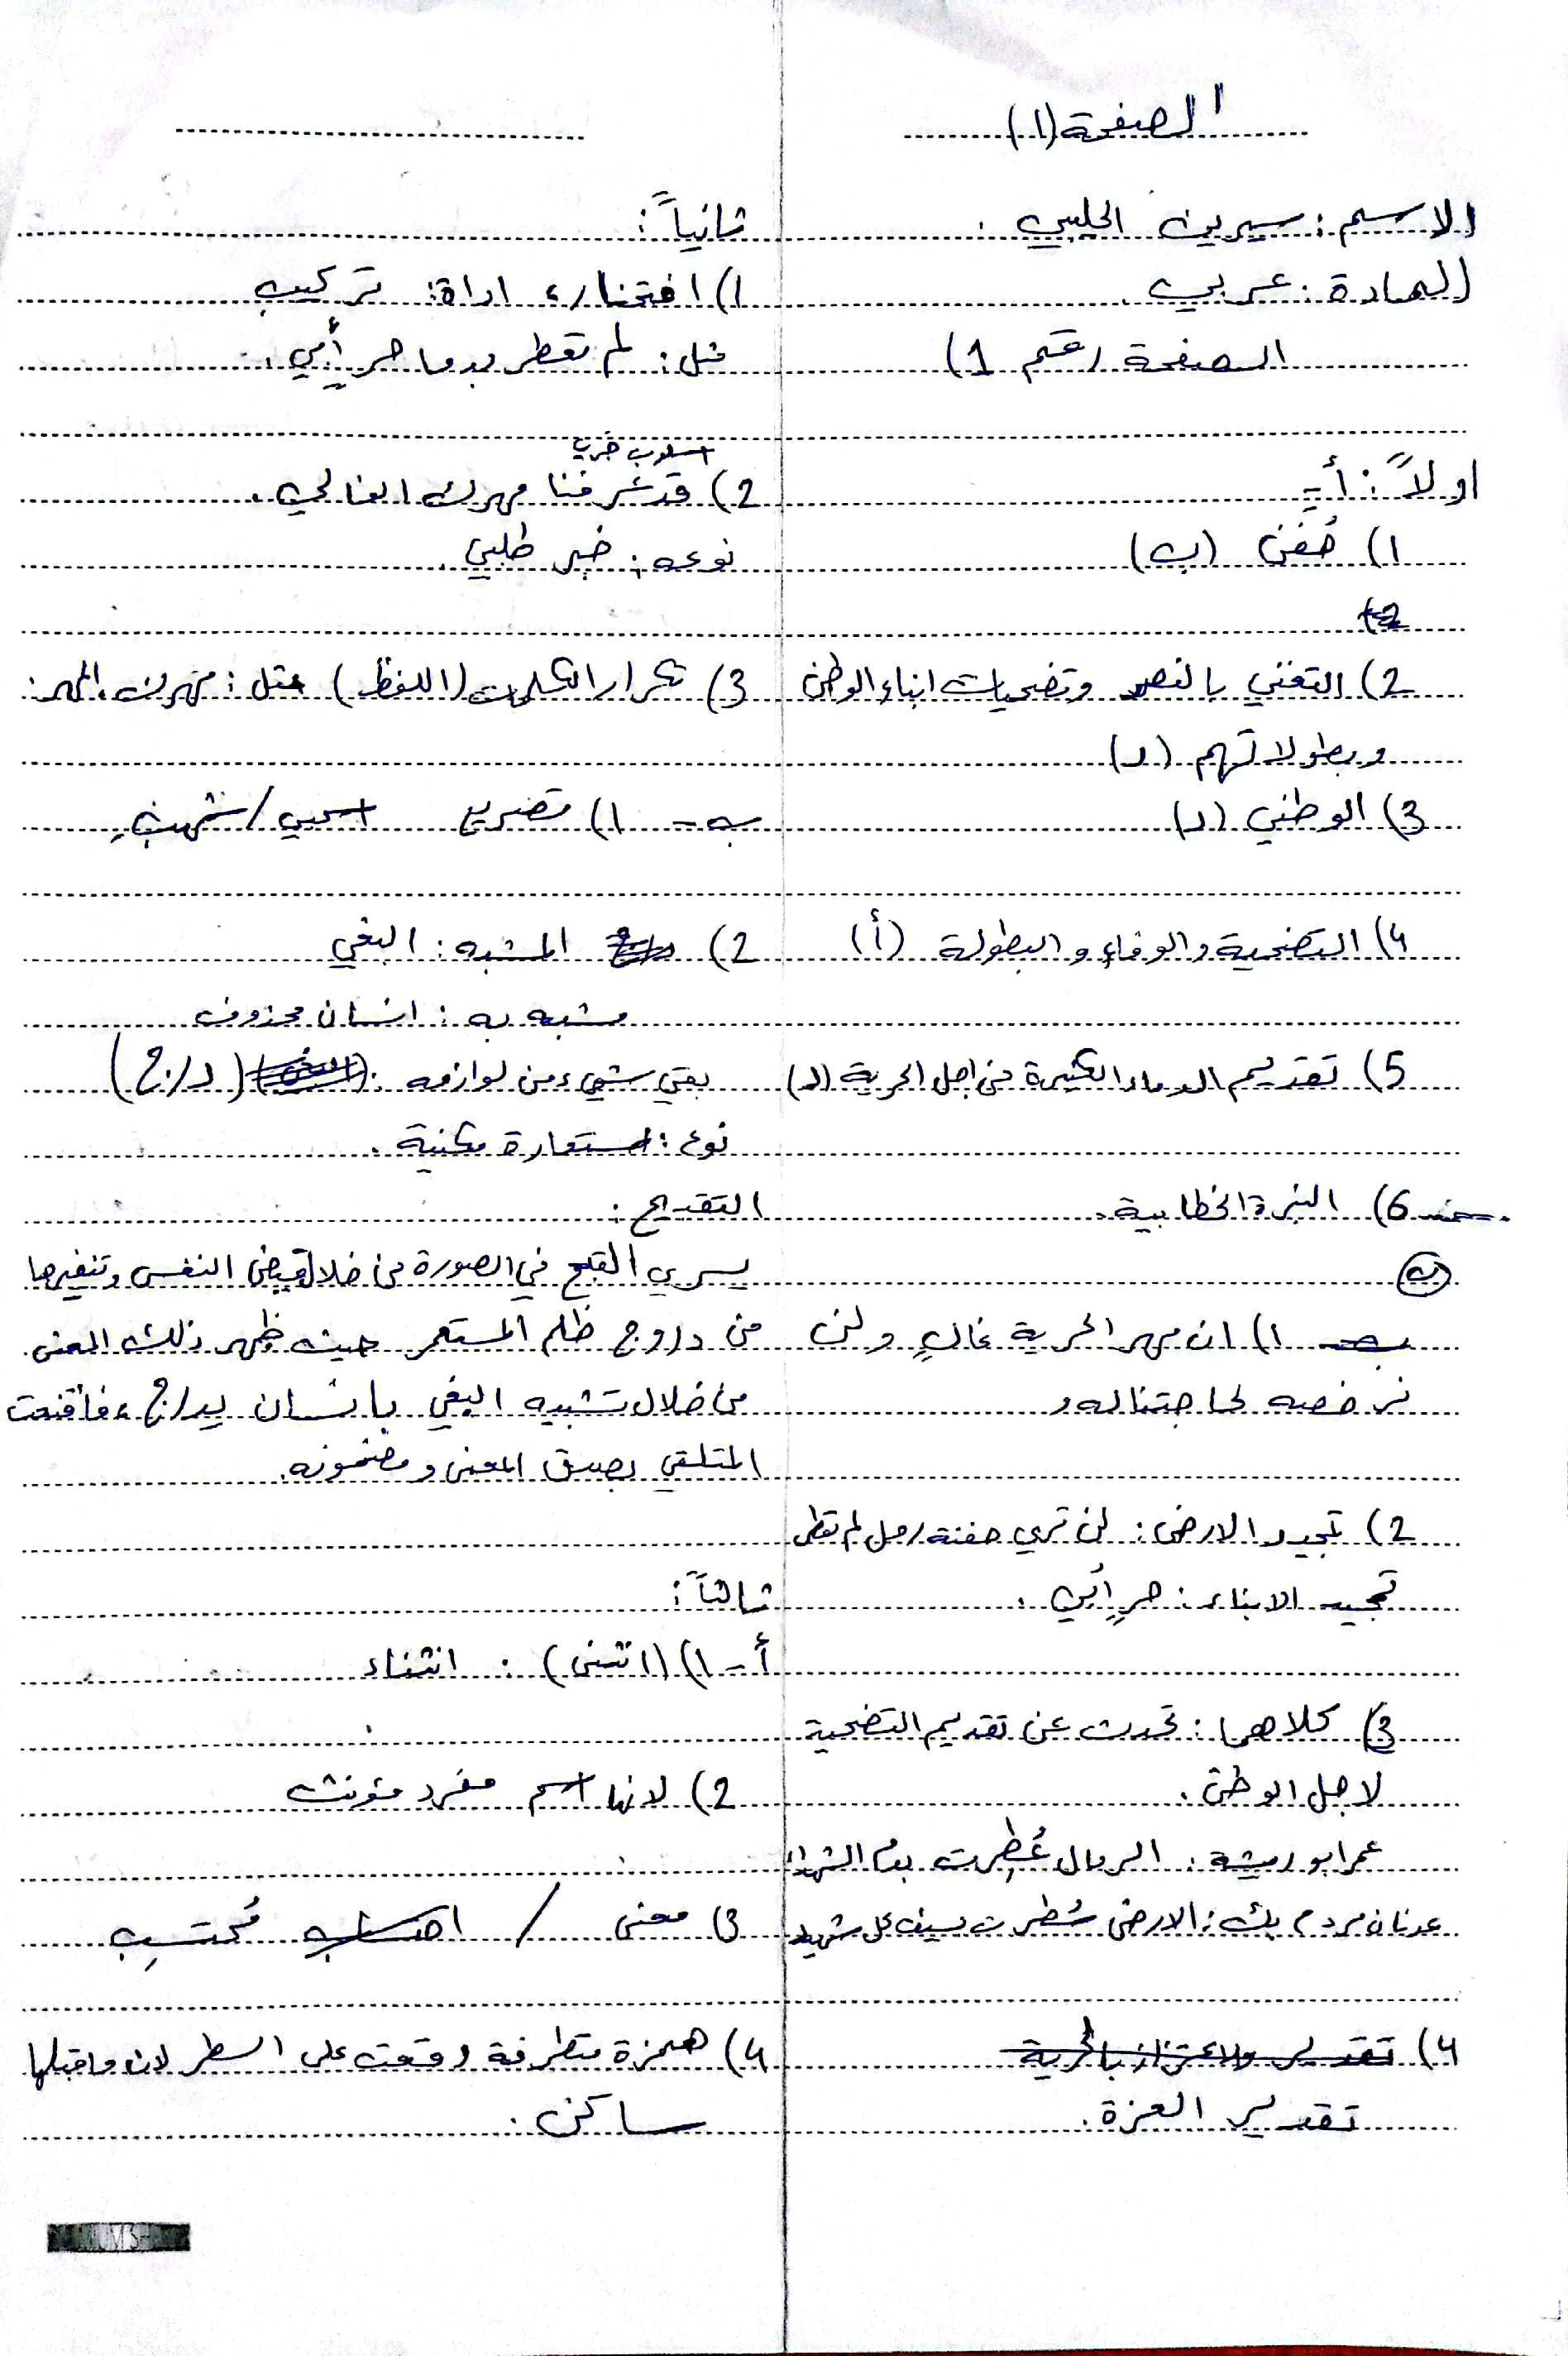 الصفحة (1)
الاسم: سيرين الحلبي.
المادة: عربي.
الصفحة رقم 1)
اولاً: أ-
1) حُفن (ب)
2)
2) التغني بالنصر وتضحيات ابناء الوطن
وبطولاتهم (د)
3) الوطني (د)
4) التضحية والوفاء والبطولة (أ)
5) تقديم الدماء الكثيرة من اجل الحرية (د)
6) النبرة الخطابية.
ب- 1) ان مهر الحرية غالٍ ولن
نرخصه لحاجتنا له
2) تمجيد الارض: لن تري حفنة رمل لم تعطر
تمجيد الابناء: حرٍ أبي.
3) كلاهما: تحدث عن تقديم التضحية
لاجل الوطن.
عمر ابو ريشة: الرمال عُطِرت بدم الشهداء
عدنان مردم بك: الارض سُطرت بسيف كل شهيد
4) تقدير والاعتزاز بالحرية
تقدير العزة.
ثانياً:
1) افتخار، اداة: تركيب
مثل: لم تعطر بدما حرٍ أبي.
اسلوب خبري
2) قد عرفنا مهرك الغالي.
نوعه: خبر طلبي.
3) تكرار الكلمات (اللفظ) مثل: مهرك، المهر:
ب- 1) تصريع اسحبي/شهب
2) المشبه: البغي
مشبه به: انسان محذوف
بقي شيء من لوازمه. (درج)
نوع: استعارة مكنية.
التقبيح:
يسري القبح في الصورة من خلال قبض النفس وتنفيرها
من دروج ظلم المستعمر حيث ظهر ذلك المعنى.
من خلال تشبيه البغي بانسان يدرج، فأقنعت
المتلقي بصدق المعنى ومضمونه.
ثالثاً:
أ- 1) (انثنى): انثناء
2) لانها اسم مفرد مؤنث
3) معنى / مُحتسِب
4) همزة متطرفة وقعت على السطر لان ما قبلها
ساكن.